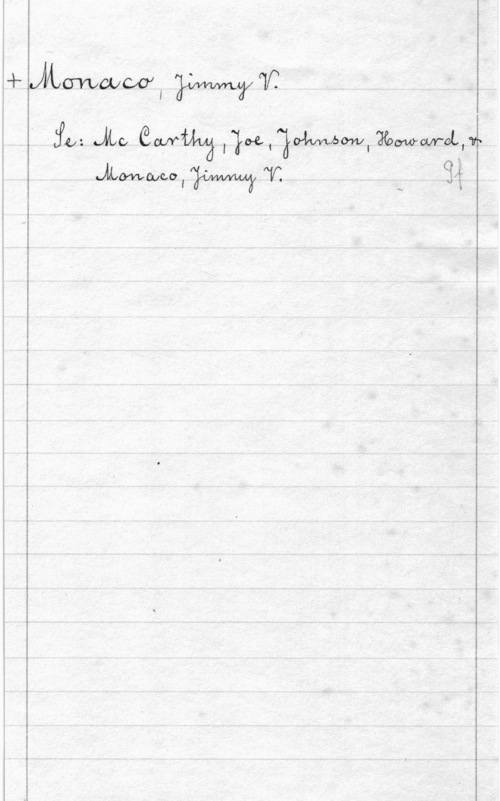 + Monaco, Jimmy V.
Se: Mc Carthy, Joe, Johnson, Howard, &
Monaco, Jimmy V.